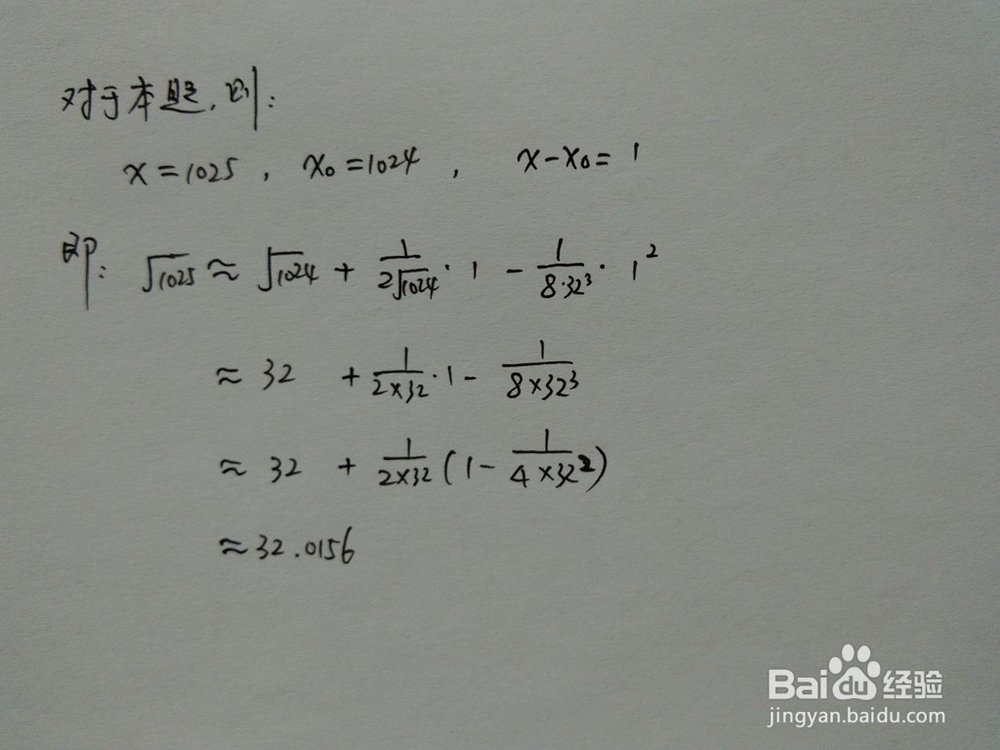 对于本题，则：
x=1025，x₀=1024，x-x₀=1
即：√1025≈√1024+1/(2√1024)·1-1/(8·32³)·1²
≈32+1/(2×32)·1-1/(8×32³)
≈32+1/(2×32)(1-1/(4×32²))
≈32.0156
Baidu经验
jingyan.baidu.com